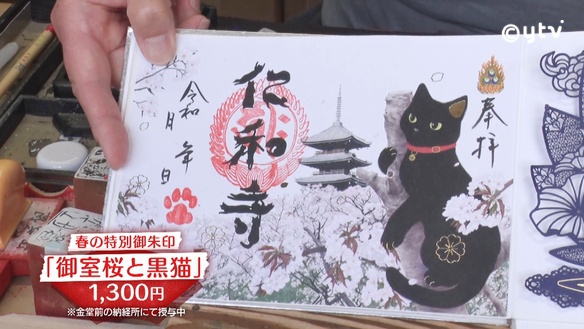 ©ytv
奉拝
仁和寺
令和 年 月 日
春の特別御朱印
「御室桜と黒猫」
1,300円
※金堂前の納経所にて授与中